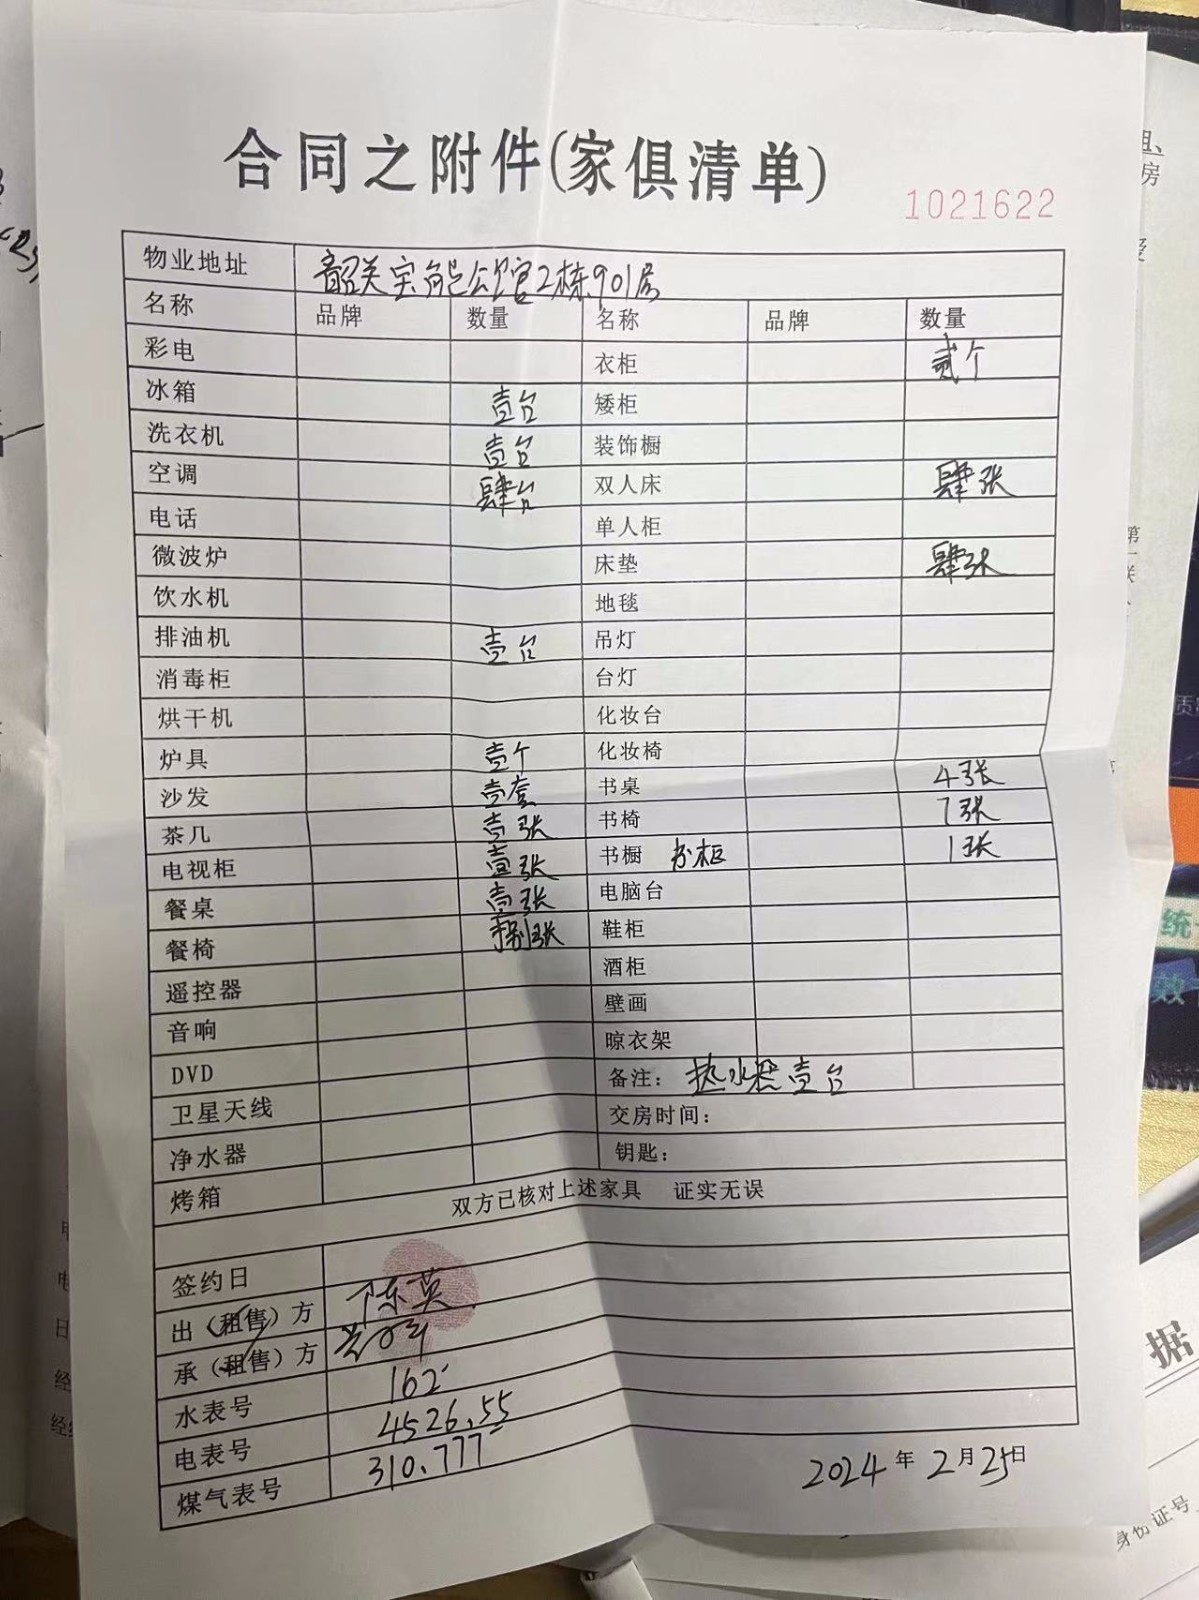 合同之附件(家俱清单)
1021622
物业地址 韶关宝能公馆2栋901房
名称 品牌 数量 名称 品牌 数量
彩电 衣柜 贰个
冰箱 壹台 矮柜
洗衣机 壹台 装饰橱
空调 肆台 双人床 肆张
电话 单人柜
微波炉 床垫 肆张
饮水机 地毯
排油机 壹台 吊灯
消毒柜 台灯
烘干机 化妆台
炉具 壹个 化妆椅
沙发 壹套 书桌 4张
茶几 壹张 书椅 7张
电视柜 壹张 书橱 书柜 1张
餐桌 壹张 电脑台
餐椅 捌张 鞋柜
遥控器 酒柜
音响 壁画
DVD 晾衣架
卫星天线 备注: 热水器壹台
净水器 交房时间:
烤箱 钥匙:
双方已核对上述家具 证实无误
签约日
出(租售)方 陈英
承(租售)方
水表号 162
电表号 4526.55
煤气表号 310.777
2024年2月25日
据
身份证号